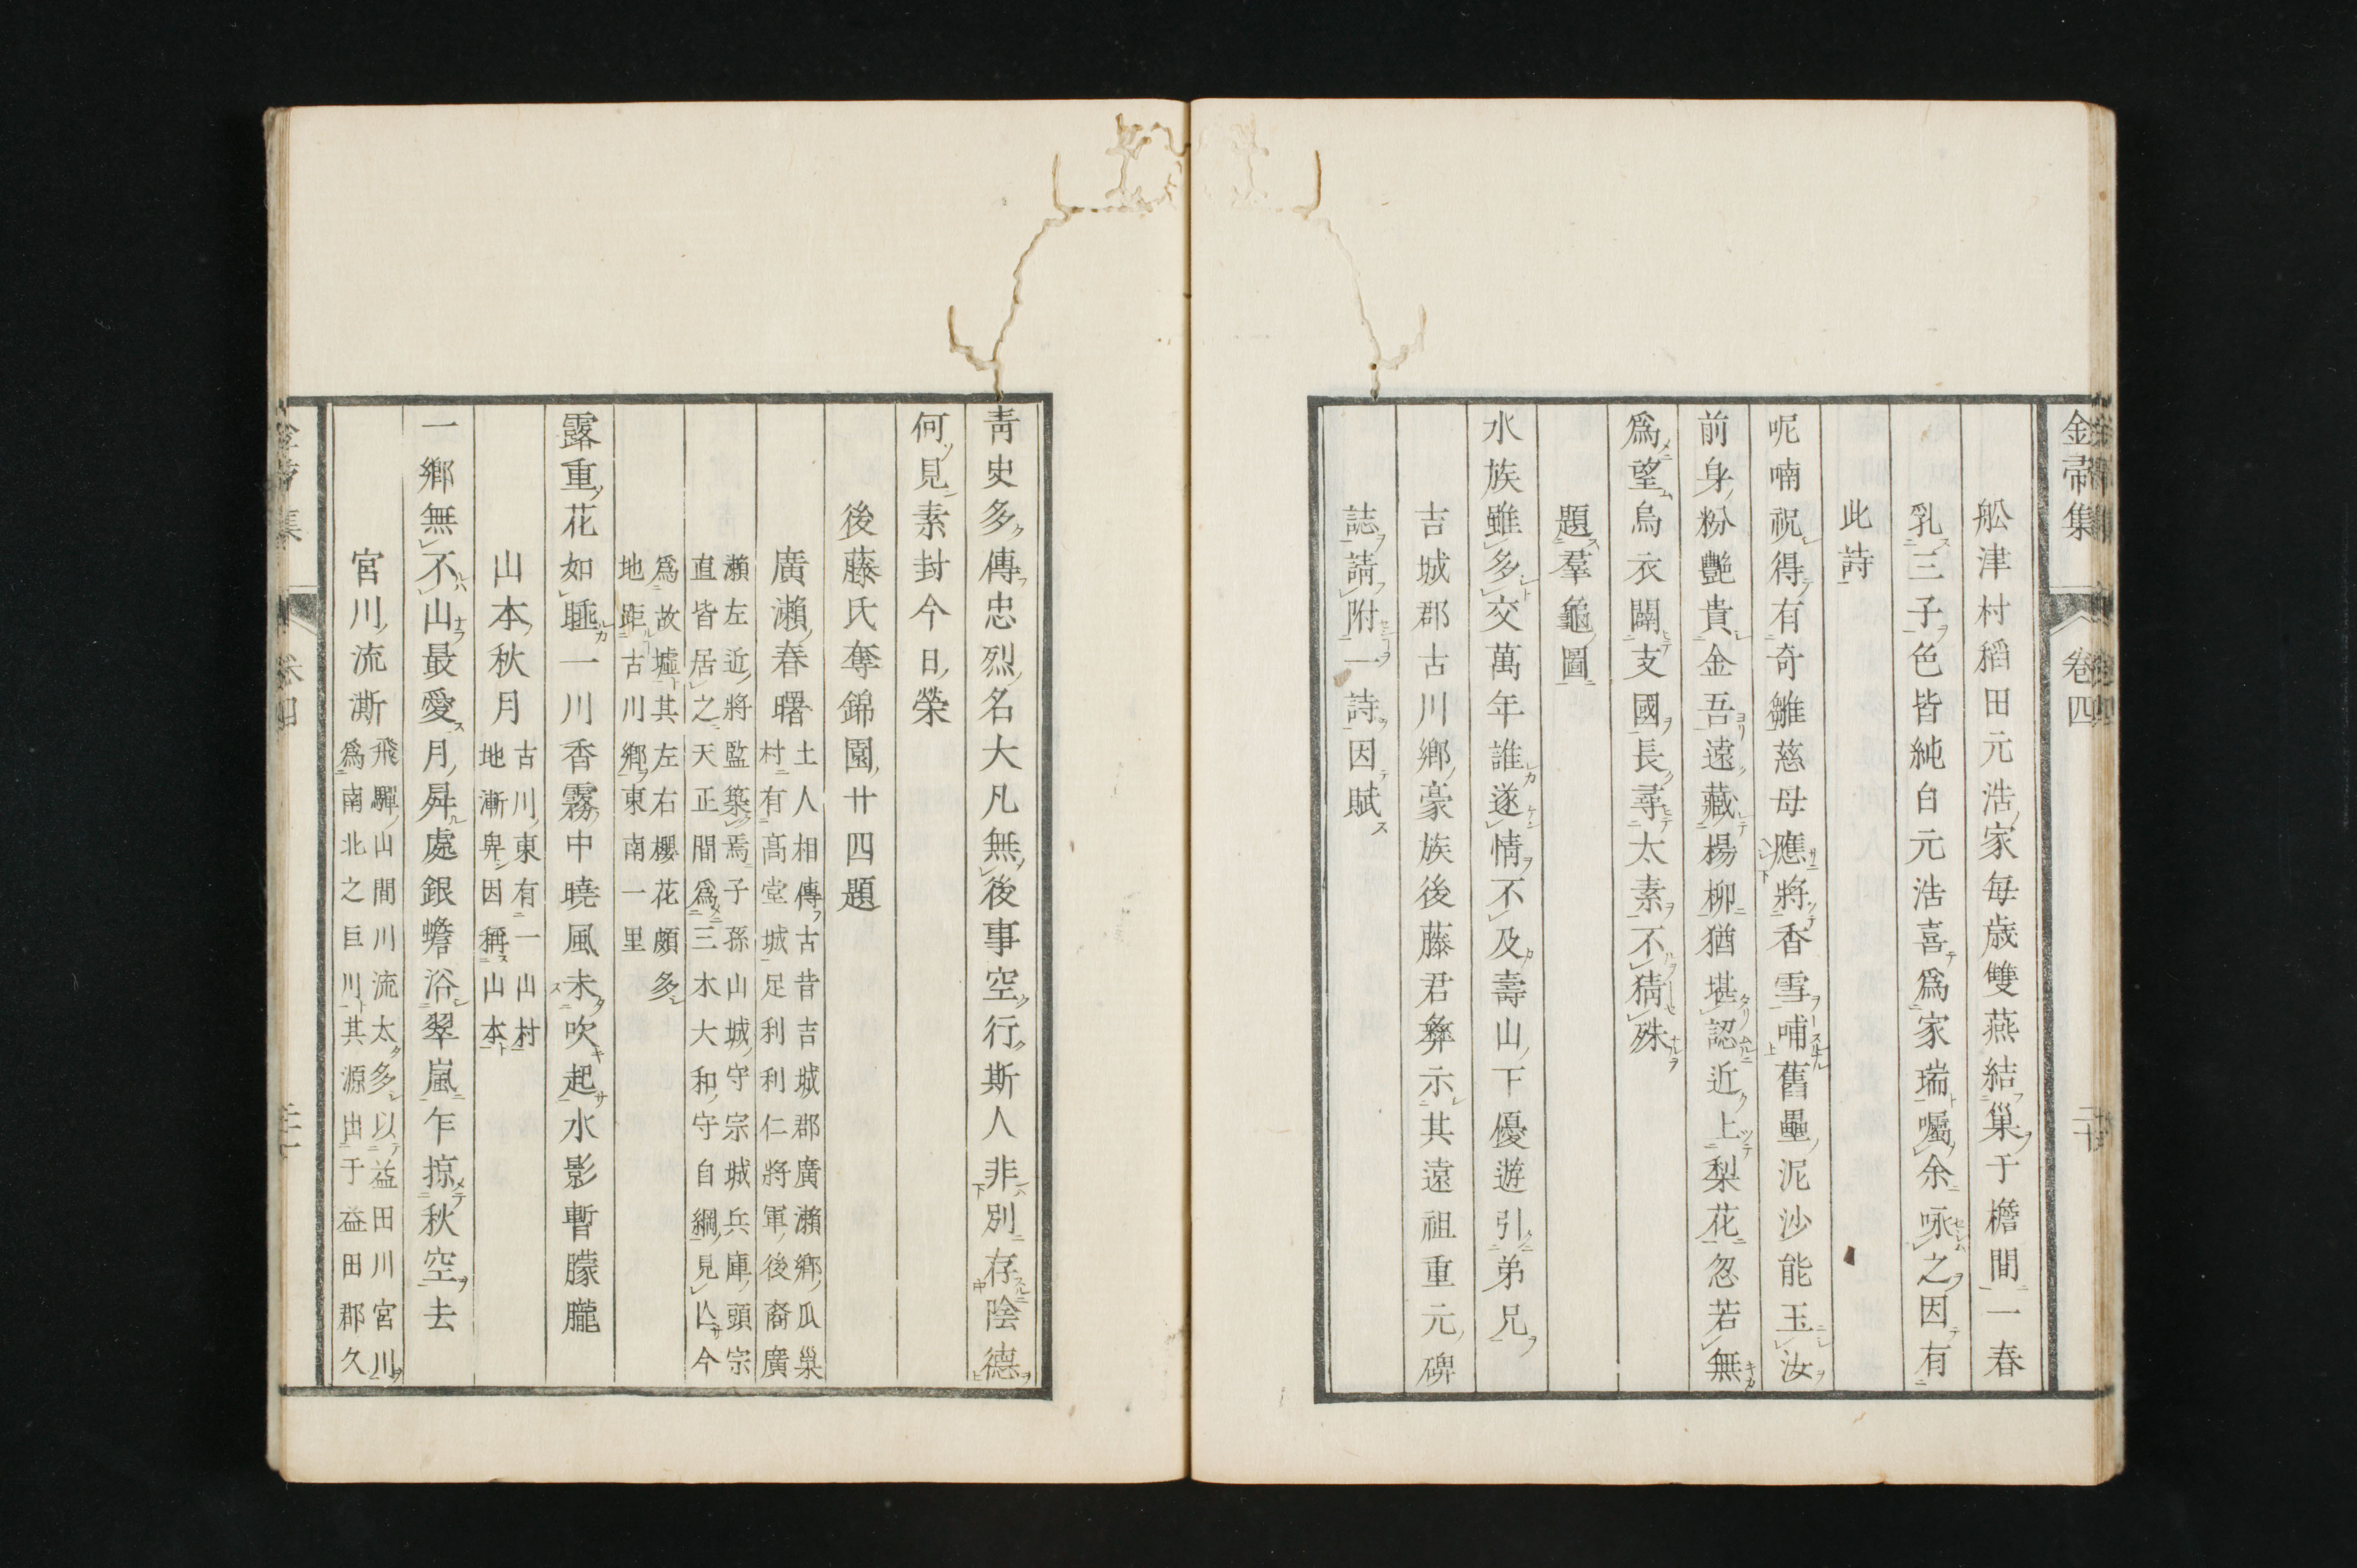 金帚集 卷四 二十
舩津村稻田元浩家毎歳雙燕結巢于檐間一春
乳三子色皆純白元浩喜爲家瑞囑余咏之因有
此詩
呢喃祝得有奇雛慈母應將香雪哺舊壘泥沙能玉汝
前身粉艷貴金吾遠藏楊柳猶堪認近上梨花忽若無
爲望烏衣闢支國長尋太素不猜殊
題羣龜圖
水族雖多交萬年誰遂情不及壽山下優遊引弟兄
吉城郡古川鄉豪族後藤君彜示其遠祖重元碑
誌請附一詩因賦
靑史多傳忠烈名大凡無後事空行斯人非別存陰德
何見素封今日榮
後藤氏奪錦園廿四題
廣瀨春曙 土人相傳古昔吉城郡廣瀨鄉瓜巢
村有髙堂城足利利仁將軍後裔廣
瀨左近將監築焉子孫山城守宗城兵庫頭宗
直皆居之天正間爲三木大和守自綱見亾今
爲故墟其左右櫻花頗多
地距古川鄉東南一里
露重花如睡一川香霧中曉風未吹起水影暫朦朧
山本秋月 古川東有一山村
地漸卑因稱山本
一鄉無不山最愛月昇處銀蟾浴翠嵐乍掠秋空去
宮川流澌 飛驒山間川流太多以益田川宮川
爲南北之巨川其源出于益田郡久